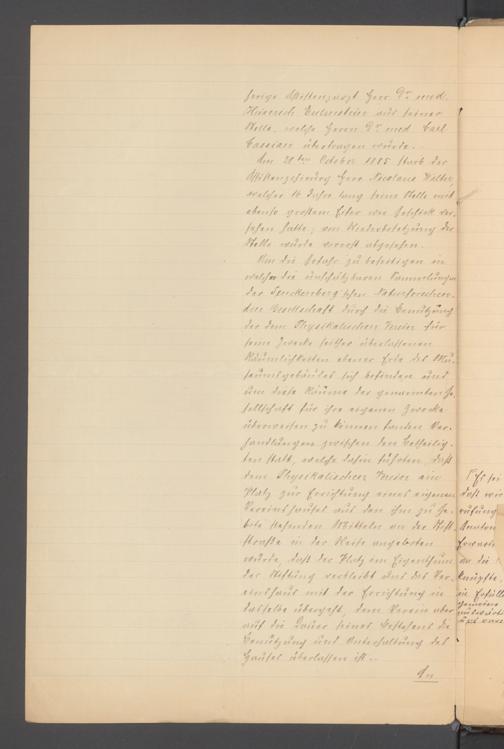 herige Assistenzarzt Herr Dr. med.
Heinrich aus seiner
Stelle, welche Herrn Dr. med. Carl
Cassian übertragen wurde.
Am 28ten October 1885 starb der
Assistenzchirurg Herr Nicolaus
welcher 14 Jahre lang seine Stelle mit
ebenso großem Eifer wie Geschick ver-
sehen hatte; von Wiederbesetzung der
Stelle wurde vorerst abgesehen.
Um die Gefahr zu beseitigen in
welcher die unschätzbaren Sammlungen
der Senckenberg'schen Naturforschen-
den Gesellschaft durch die Benützung
der dem Physikalischen Verein für
seine Zwecke seither überlassenen
Räumlichkeiten ebener Erde des Mu-
seumsgebäudes sich befinden und
um diese Räume der genannten Ge-
sellschaft für ihre eigenen Zwecke
überweisen zu können fanden Ver-
handlungen zwischen den Betheilig-
ten statt, welche dahin führten, daß
dem Physikalischen Verein ein
Platz zur Errichtung eines eigenen
Vereinshauses aus den ihm zu Ge-
bote stehenden Mitteln an der Stift-
straße in der Weise angeboten
wurde, daß der Platz im Eigenthum
der Stiftung verbleibt und das Ver-
einshaus mit der Errichtung in
dasselbe übergeht, dem Verein aber
auf die Dauer seines Bestehens die
Benützung und Unterhaltung des
Hauses überlassen ist.
An
daß wir
an die
knüpfte,
in Erfüll